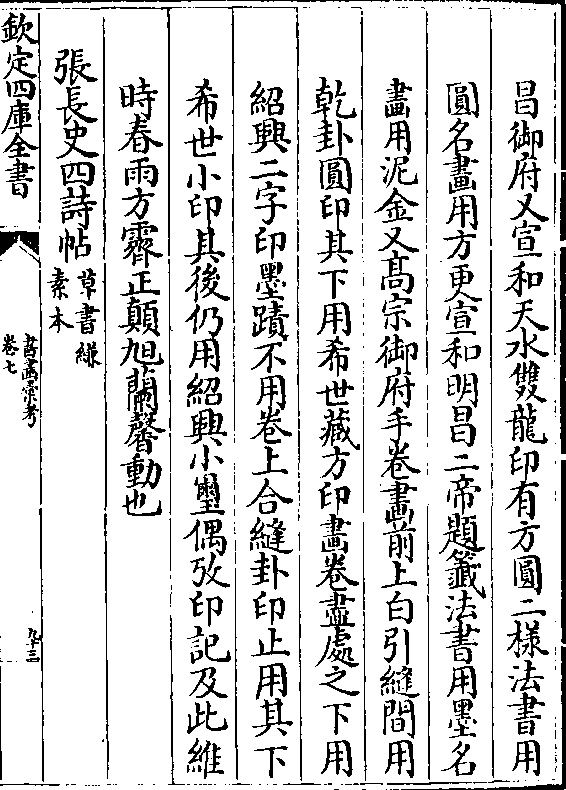 昌御府又宣和天水雙龍印有方圓二様法書用
圓名畫用方更宣和明昌二帝題籤法書用墨名
畫用泥金又髙宗御府手卷畫前上白引縫間用
乾卦圓印其下用希世藏方印畫卷盡處之下用
紹興二字印墨蹟不用卷上合縫卦印止用其下
希世小印其後仍用紹興小璽偶攷印記及此維
時春雨方霽正顛旭蘭馨動也
張長史四詩帖草書縑素本
欽定四庫全書
書畫彙考
卷七
九十三